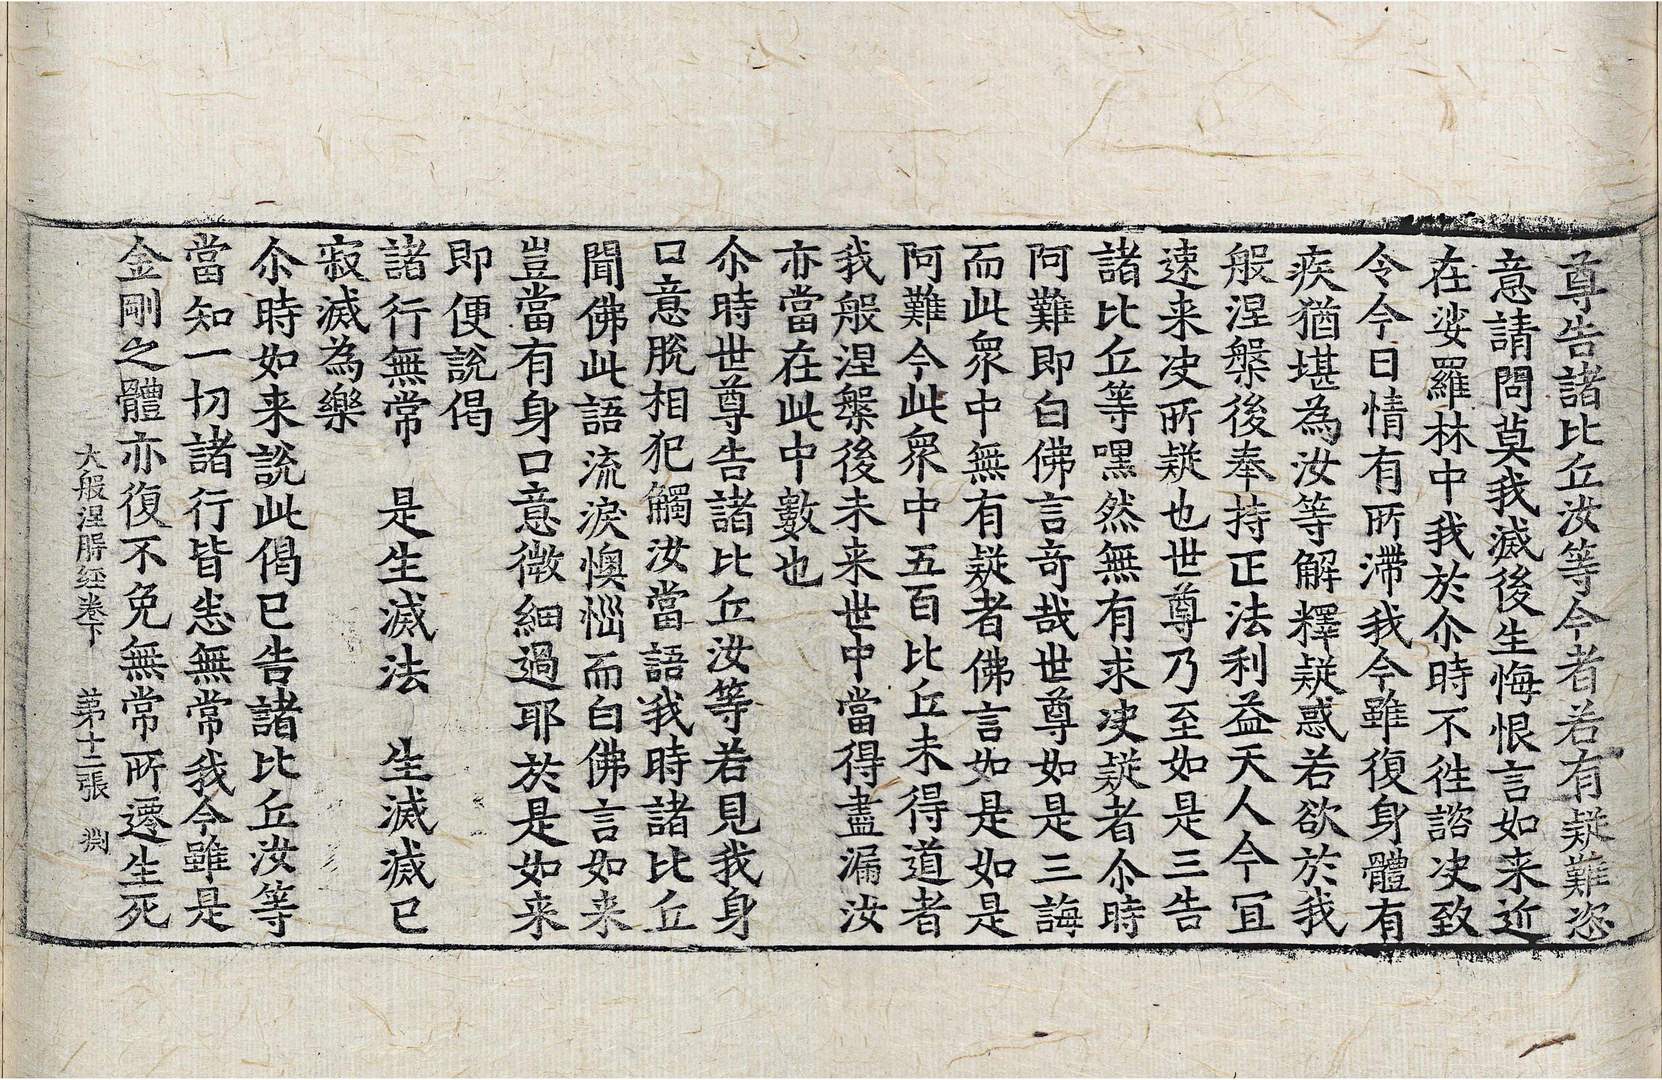 尊告諸比丘汝等今者若有疑難恣
意請問莫我滅後生悔恨言如来近
在娑羅林中我於尒時不徃諮决致
令今日情有所滯我今雖復身體有
疾猶堪為汝等解釋疑惑若欲於我
般涅槃後奉持正法利益天人今冝
速来决所疑也世尊乃至如是三告
諸比丘等嘿然無有求决疑者尒時
阿難即白佛言竒哉世尊如是三誨
而此衆中無有疑者佛言如是如是
阿難今此衆中五百比丘未得道者
我般涅槃後未来世中當得盡漏汝
亦當在此中數也
尒時世尊告諸比丘汝等若見我身
口意脫相犯觸汝當語我時諸比丘
聞佛此語流淚懊惱而白佛言如来
豈當有身口意微細過耶於是如来
即便說偈
諸行無常　是生滅法　生滅滅已
寂滅為樂
尒時如来說此偈已告諸比丘汝等
當知一切諸行皆悉無常我今雖是
金剛之體亦復不免無常所遷生死
大般涅槃経卷下　第十二張　渕